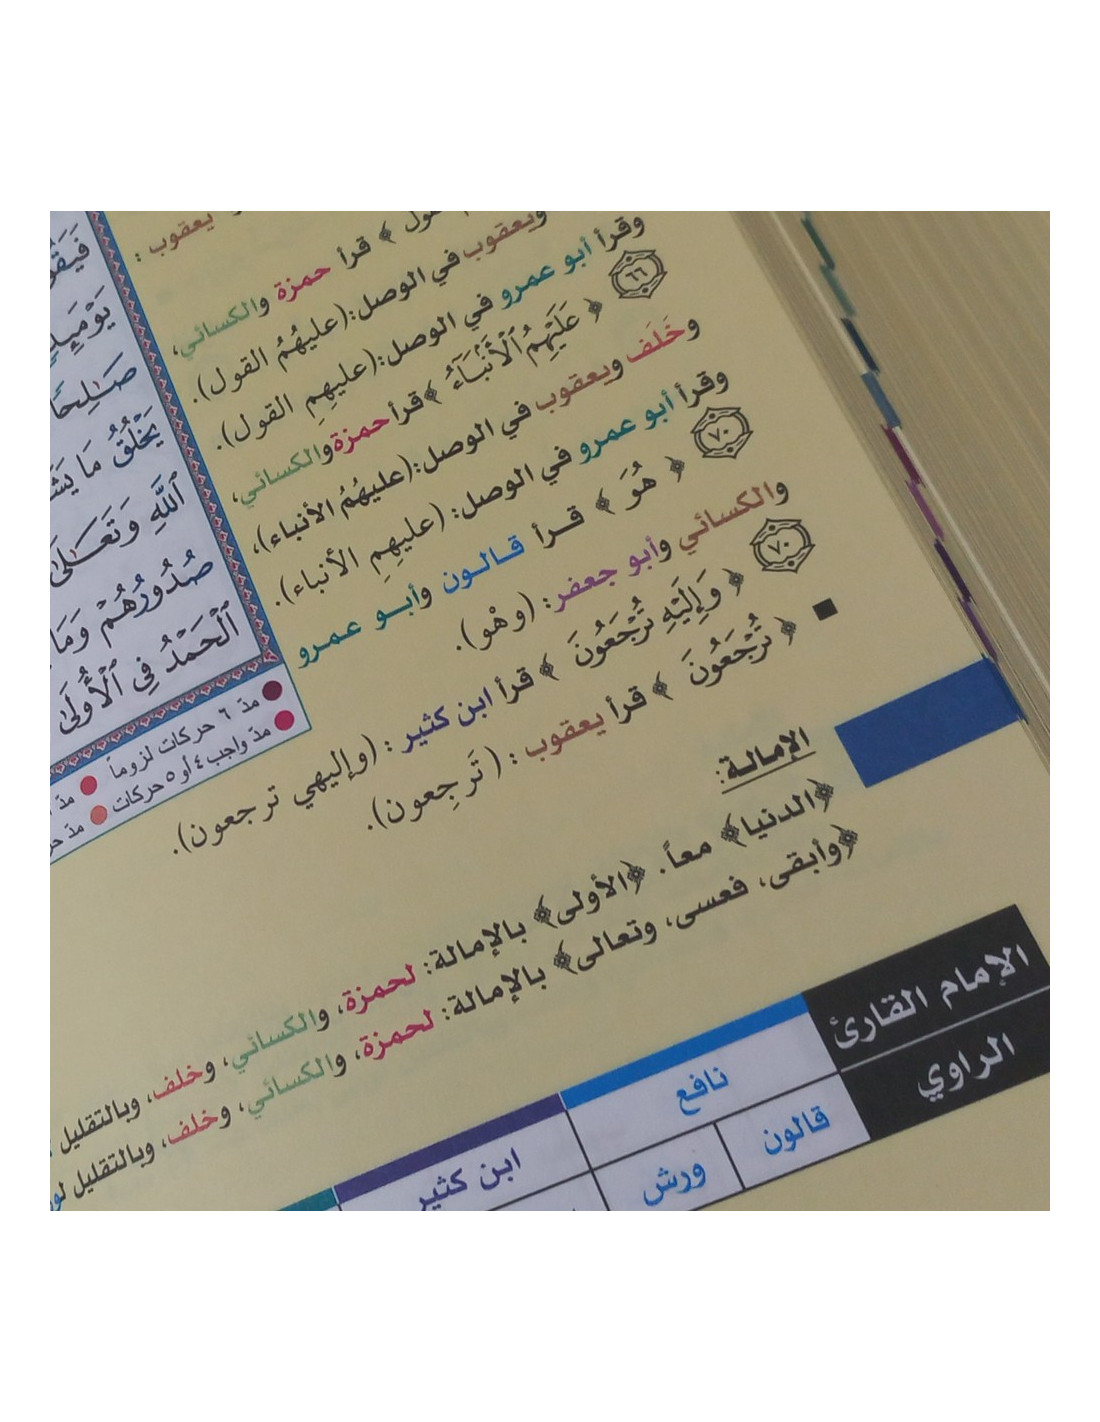 يعقوب :
﴾ قرأ حمزة والكسائي،
ويعقوب في الوصل:(عليهُمُ القول).
وقرأ أبو عمرو في الوصل:(عليهِمِ القول).
٦٦ ﴿ عَلَيْهِمُ ٱلْأَنۢبَآءُ ﴾ قرأ حمزة والكسائي،
وخَلَف ويعقوب في الوصل:(عليهُمُ الأنباء)،
وقرأ أبو عمرو في الوصل: (عليهِمِ الأنباء).
٧٠ ﴿ هُوَ ﴾ قرأ قالون وأبو عمرو
والكسائي وأبو جعفر: (وهْو).
٧٠ ﴿ وَإِلَيْهِ تُرْجَعُونَ ﴾ قرأ ابن كثير : (وإليهي ترجعون).
■ ﴿ تُرْجَعُونَ ﴾ قرأ يعقوب : (تَرجِعون).
الإمالة:
﴿الدنيا﴾ معاً. ﴿الأولى﴾ بالإمالة: لحمزة، والكسائي، وخلف، وبالتقليل
﴿وأبقى، فعسى، وتعالى﴾ بالإمالة: لحمزة، والكسائي، وخلف، وبالتقليل
صَـٰلِحًا
يَخْلُقُ مَا
ٱللَّهِ وَتَعَـٰلَىٰ
صُدُورُهُمْ وَمَا
ٱلْحَمْدُ فِي ٱلْأُولَىٰ
مدّ ٦ حركات لزوماً
مدّ واجب ٤ أو ٥ حركات
الإمام القارئ نافع ابن كثير
الراوي قالون ورش